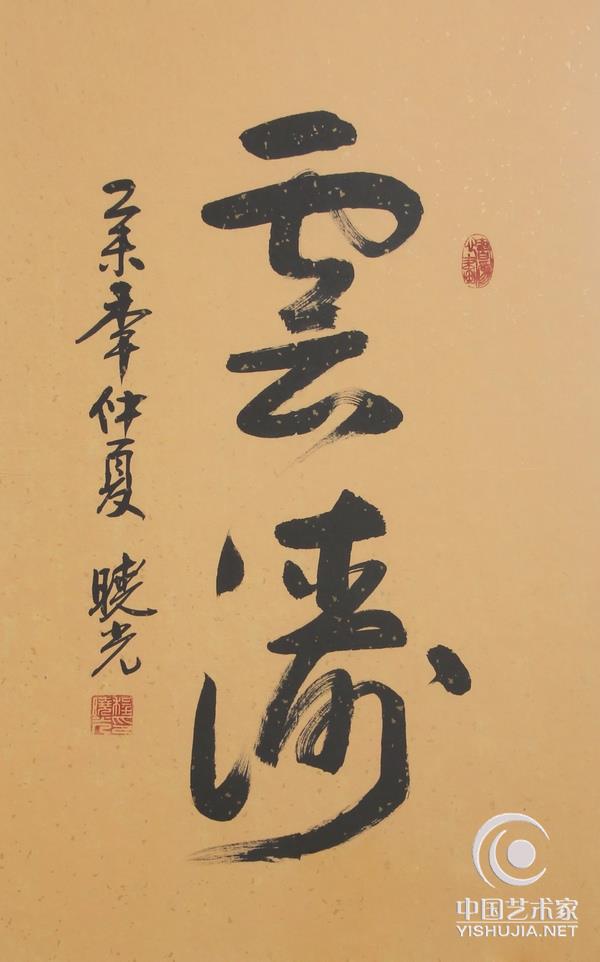 雲濤
乙未秊仲夏 曉光
中国艺术家
YISHUJIA.NET